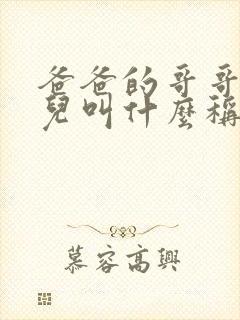 爸爸的哥哥
兒叫什麼稱
慕容高興